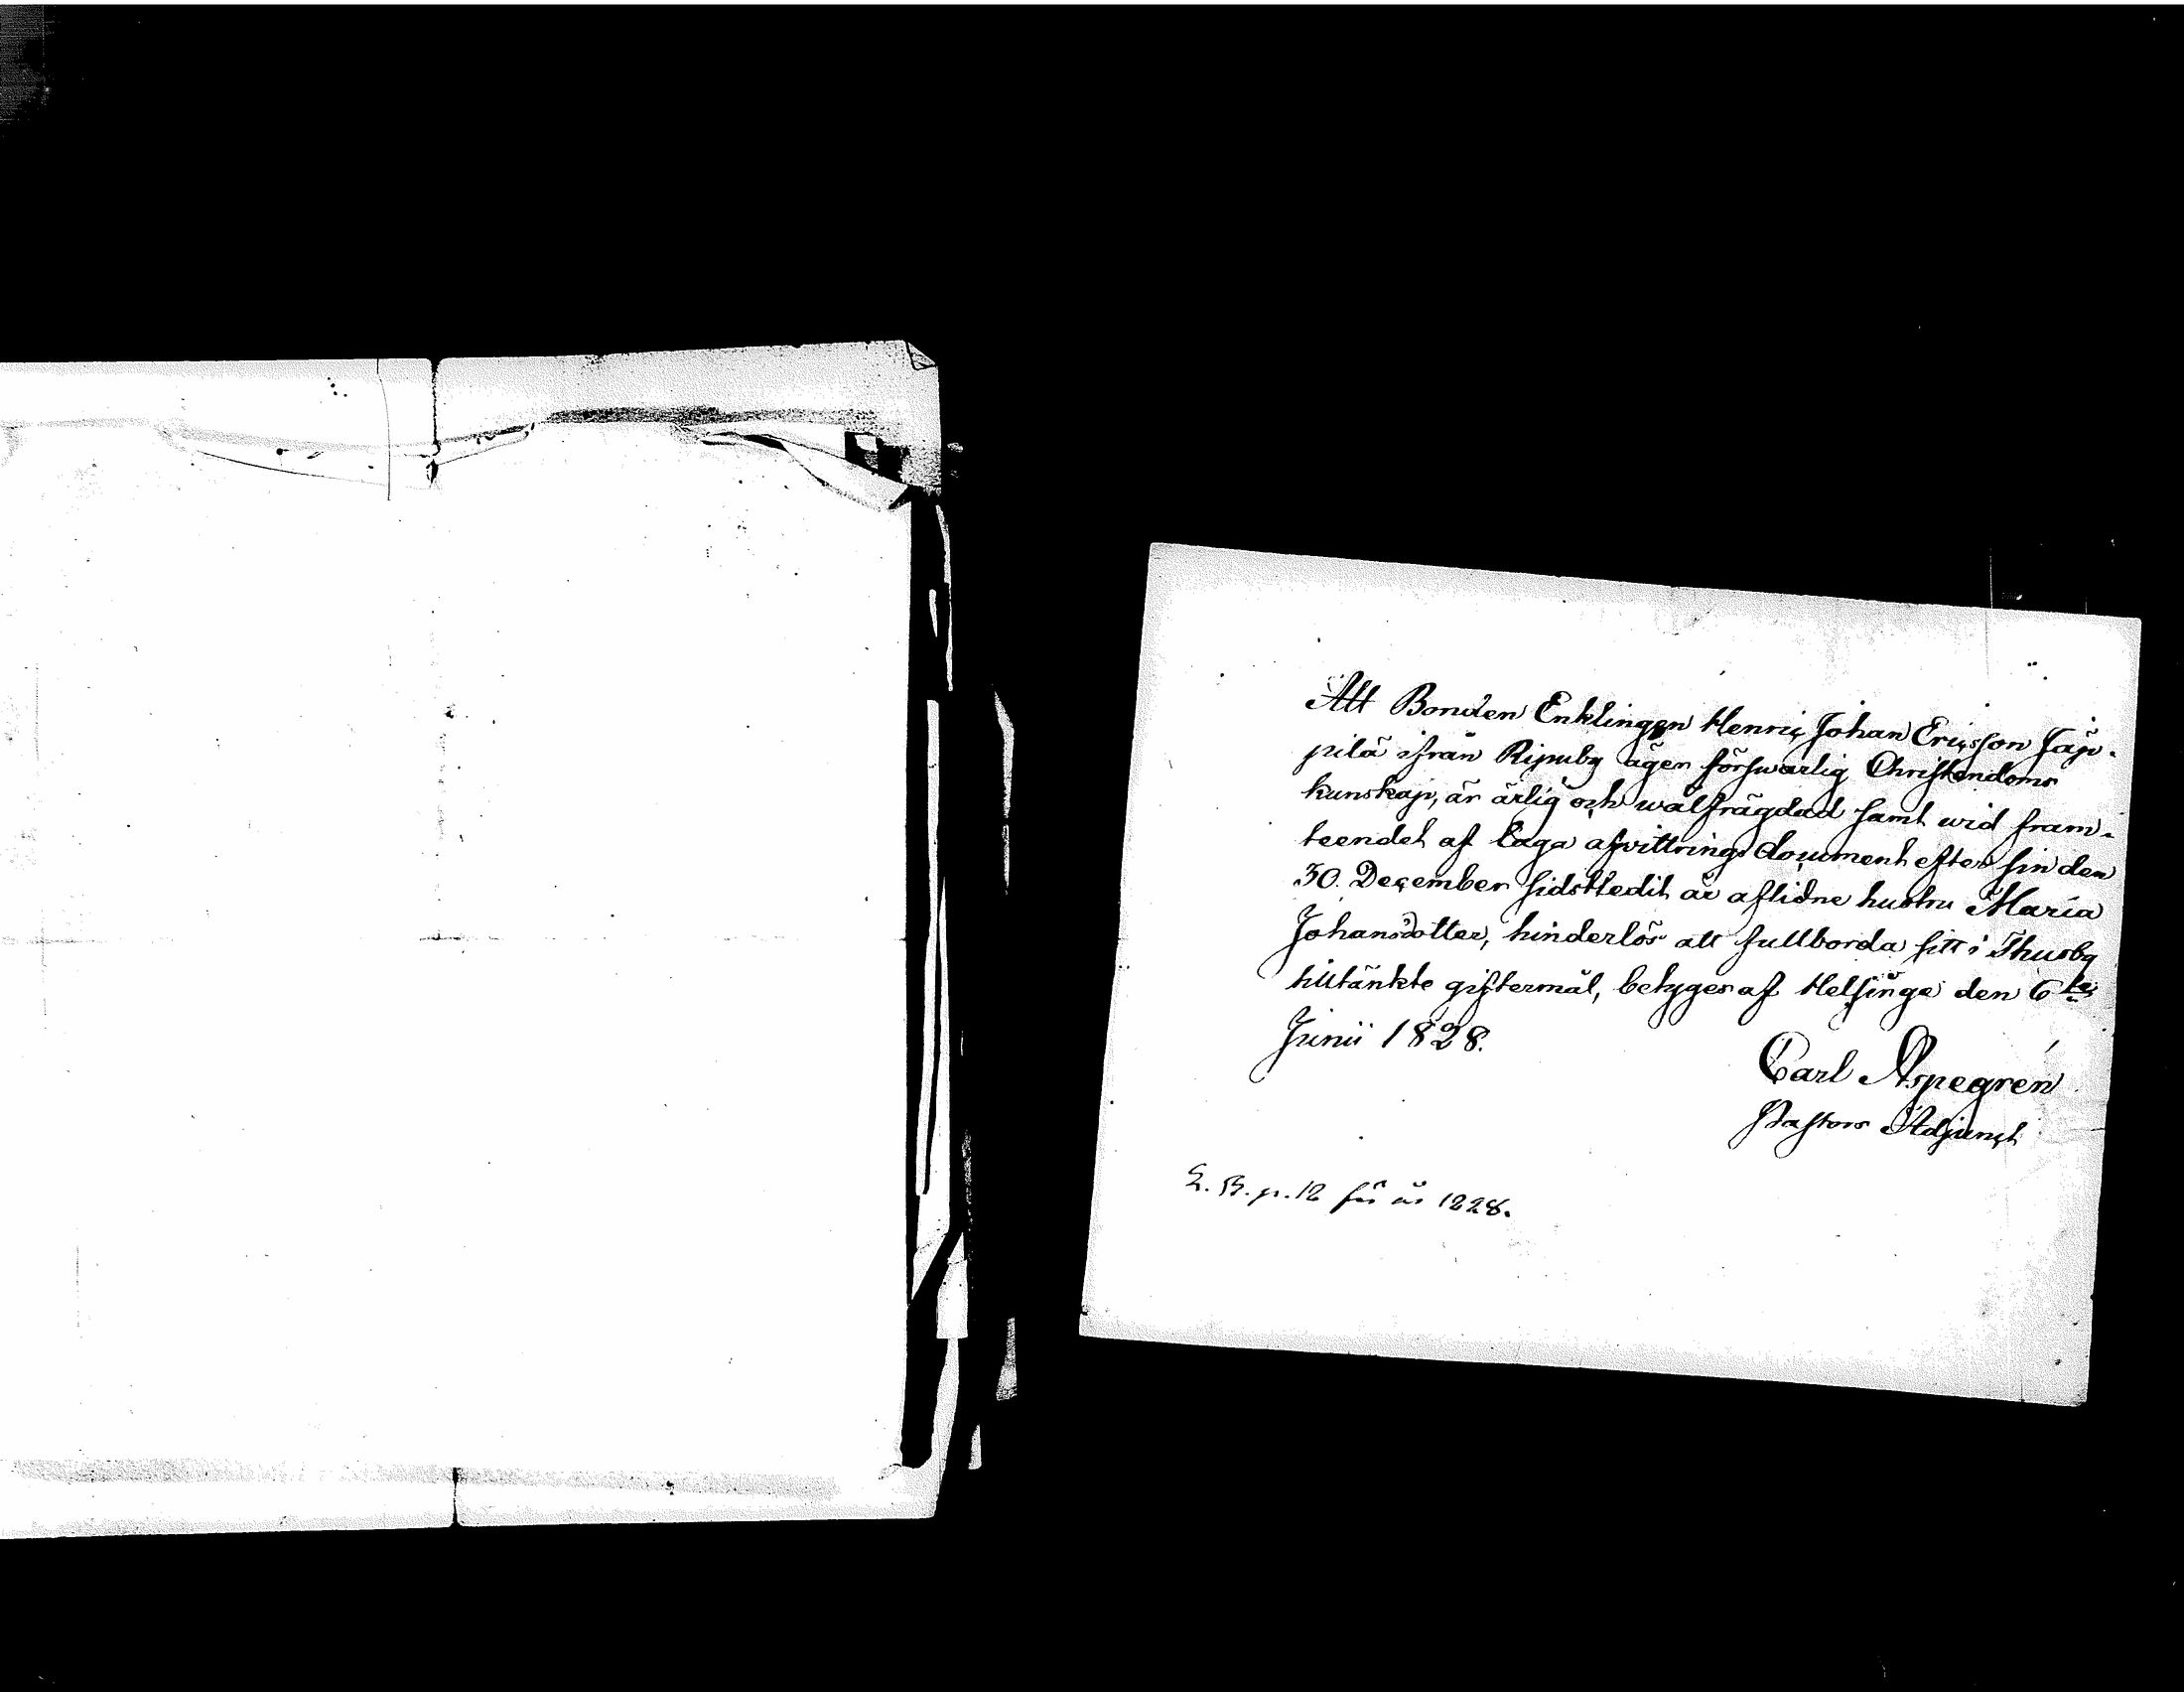 Att Bonden Enklingen Henric Johan Ericsson Jäp-
pilä ifrån Ripuby äger förswarlig Christendoms
kunskap, är ärlig och wälfrägdad samt wid fram-
teendet af Laga afvittrings document efter sin den
30. December sidstledit år aflidne hustru Maria
Johansdotter, hinderlös att fullborda sitt i Thusby
tiltänkte giftermål, betyges af Helsinge den 6te
Junii 1828.
Carl Aspegrén
Pastors Adjunct
L. B. p. 12 för år 1828.